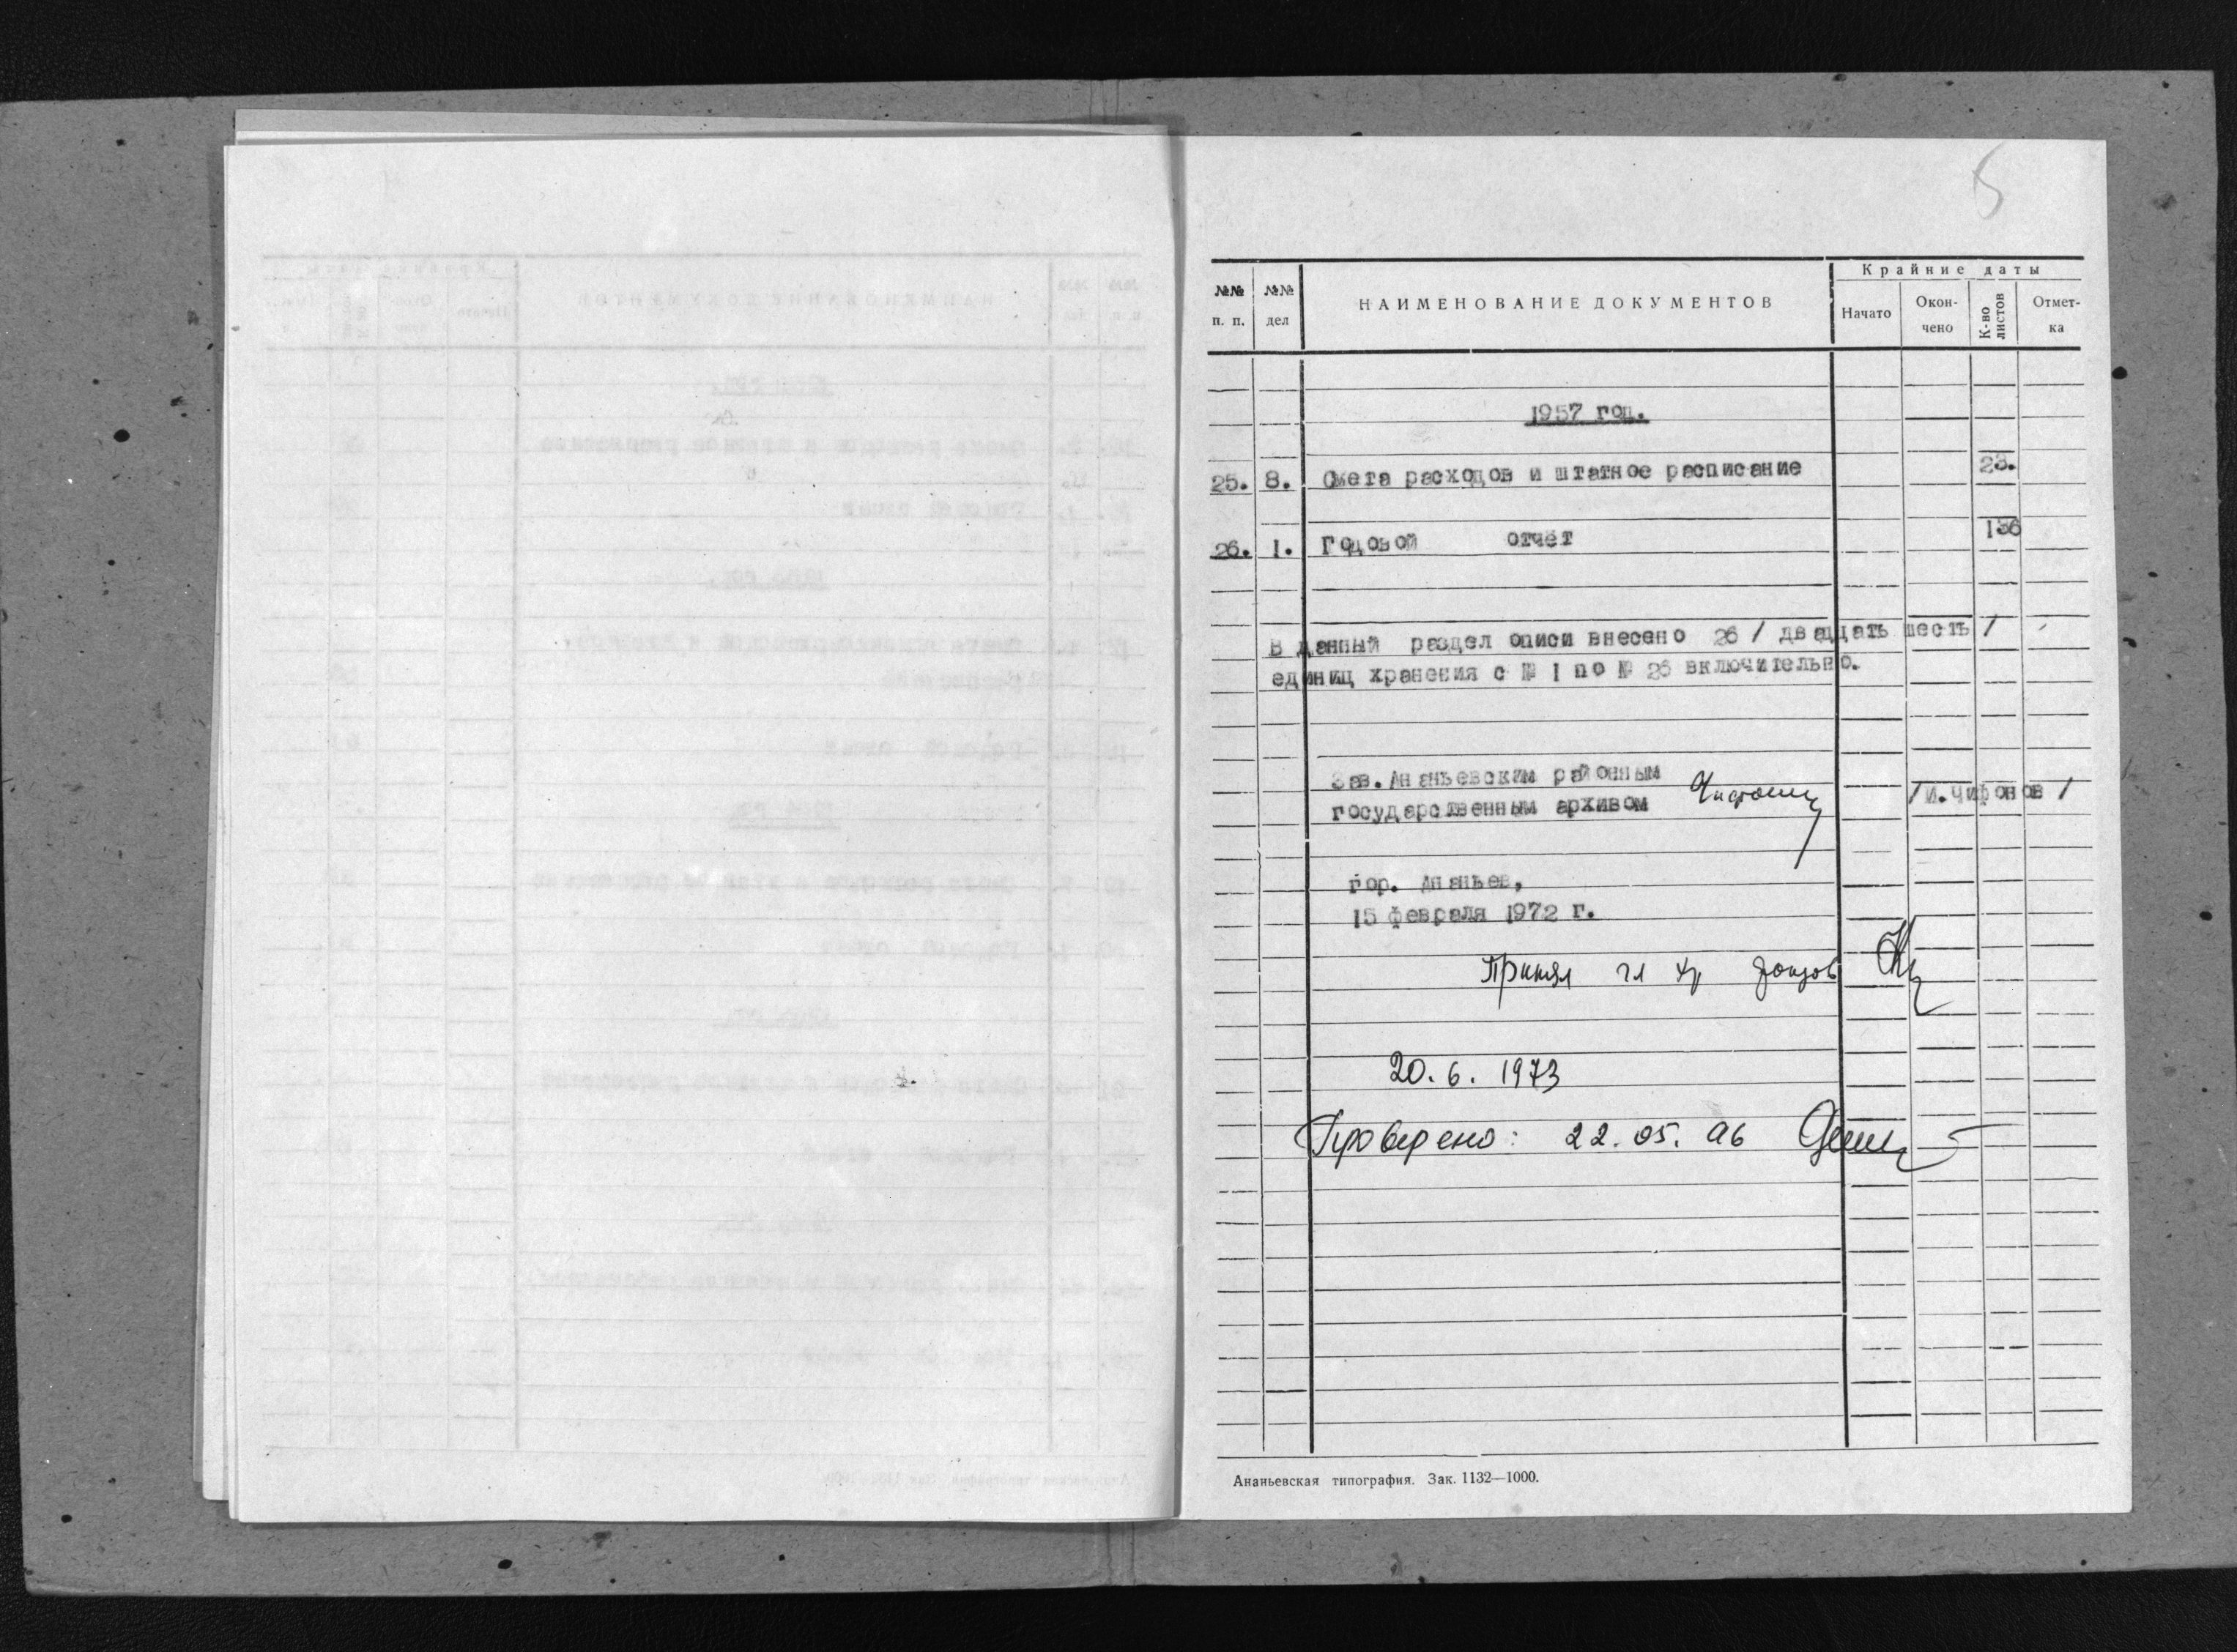 5
Крайние даты
№№ п. п. №№ дел НАИМЕНОВАНИЕ ДОКУМЕНТОВ Начато Окон-чено К-во листов Отмет-ка
1957 год.
25. 8. Смета расходов и штатное расписание 23.
26. 1. Годовой отчет 136
В данный раздел описи внесено 26 / двадцать шесть /
единиц хранения с № 1 по № 26 включительно.
Зав. Ананьевским районным
государственным архивом /И.Чифонов /
гор. Ананьев,
15 февраля 1972 г.
Принял гл хр фондов
20.6.1973
Проверено: 22.05.96
Ананьевская типография. Зак. 1132—1000.